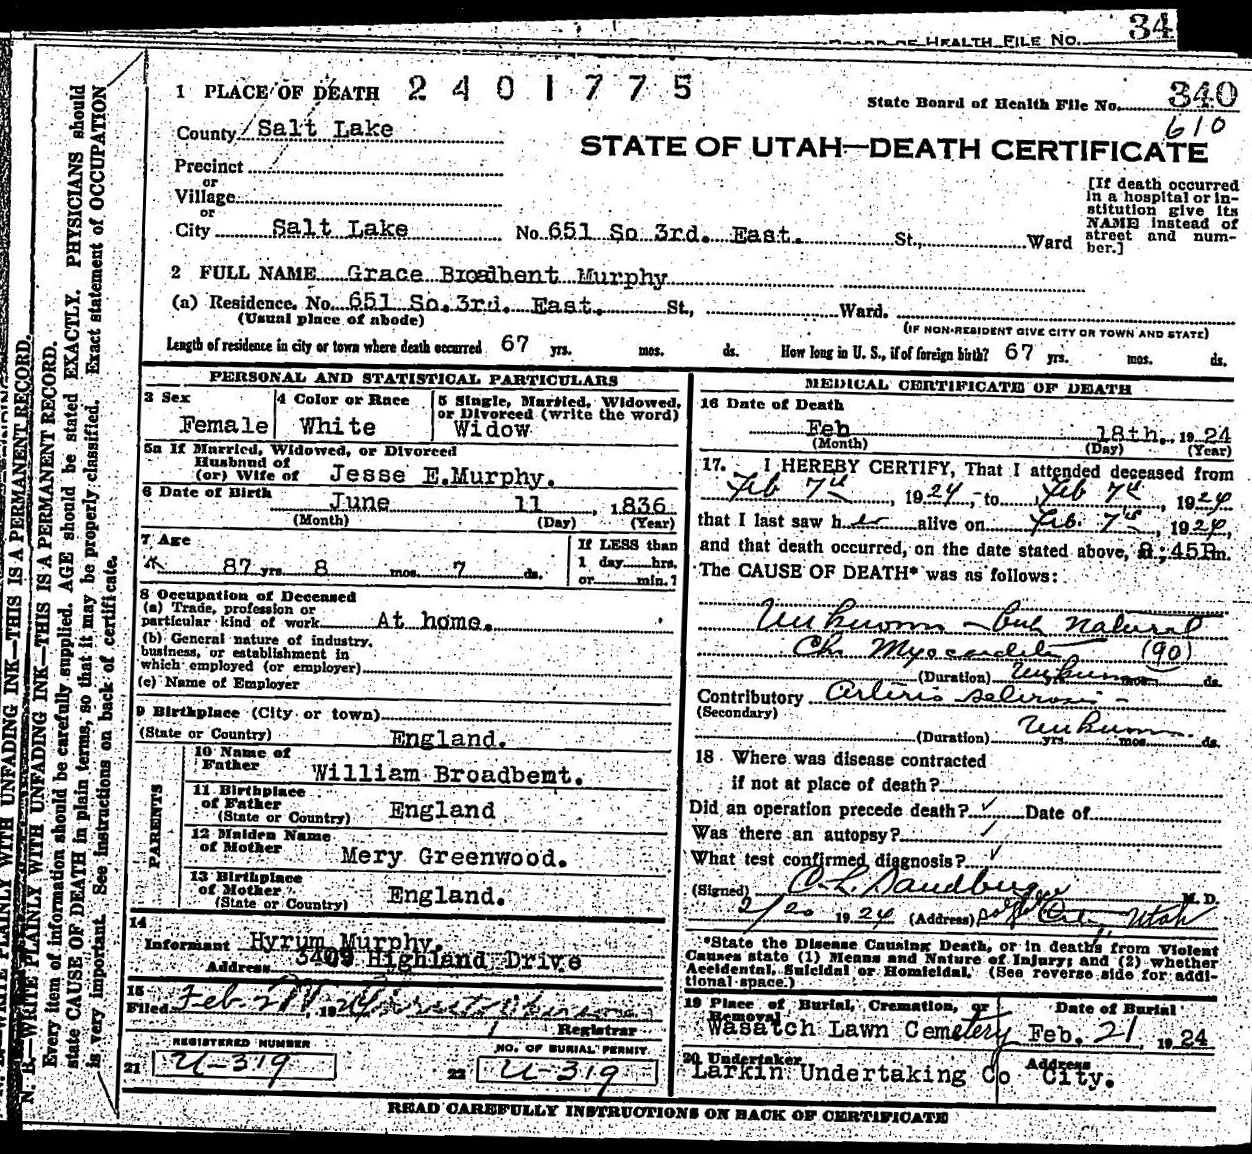 34
BOARD OF HEALTH FILE NO.
1 PLACE OF DEATH 2401775
State Board of Health File No. 340
610
County Salt Lake
STATE OF UTAH—DEATH CERTIFICATE
Precinct
or
Village
or
City Salt Lake No 651 So 3rd. East. St., Ward
[If death occurred in a hospital or institution give its NAME instead of street and number.]
2 FULL NAME Grace Broadbent Murphy
(a) Residence. No. 651 So. 3rd. East. St., Ward.
(Usual place of abode)
(IF NON-RESIDENT GIVE CITY OR TOWN AND STATE)
Length of residence in city or town where death occurred 67 yrs. mos. ds. How long in U. S., if of foreign birth? 67 yrs. mos. ds.
PERSONAL AND STATISTICAL PARTICULARS
3 Sex Female
4 Color or Race White
5 Single, Married, Widowed, or Divorced (write the word) Widow
5a If Married, Widowed, or Divorced
Husband of
(or) Wife of Jesse E.Murphy.
6 Date of Birth June 11, 1836
(Month) (Day) (Year)
7 Age 87 yrs. 8 mos. 7 ds.
If LESS than
1 day hrs.
or min.?
8 Occupation of Deceased
(a) Trade, profession or
particular kind of work At home.
(b) General nature of industry,
business, or establishment in
which employed (or employer)
(c) Name of Employer
9 Birthplace (City or town)
(State or Country) England.
PARENTS
10 Name of
Father William Broadbent.
11 Birthplace
of Father
(State or Country) England
12 Maiden Name
of Mother Mery Greenwood.
13 Birthplace
of Mother
(State or Country) England.
14
Informant Hyrum Murphy.
Address 3409 Highland Drive
15
Filed Feb. 19
Registrar
REGISTERED NUMBER
21 U-319
NO. OF BURIAL PERMIT
22 U-319
MEDICAL CERTIFICATE OF DEATH
16 Date of Death
Feb 18th., 1924
(Month) (Day) (Year)
17. I HEREBY CERTIFY, That I attended deceased from
Feb 7th, 1924, to Feb 7th, 1924
that I last saw her alive on Feb. 7th, 1924,
and that death occurred, on the date stated above, 8:45Pm.
The CAUSE OF DEATH* was as follows:
Unknown - but natural
Chr Myocarditis (90)
(Duration) Unknown yrs. mos. ds.
Contributory Arterio sclerosis -
(Secondary)
(Duration) Unknown yrs. mos. ds.
18 Where was disease contracted
if not at place of death?
Did an operation precede death? ✓ Date of
Was there an autopsy? ✓
What test confirmed diagnosis? ✓
(Signed) C. L. Sandberg M. D.
2/20 1924 (Address) Utah
*State the Disease Causing Death, or in deaths from Violent
Causes state (1) Means and Nature of Injury; and (2) whether
Accidental, Suicidal or Homicidal. (See reverse side for addi-
tional space.)
19 Place of Burial, Cremation, or
Removal Wasatch Lawn Cemetery
Date of Burial
Feb. 21, 1924
20 Undertaker
Larkin Undertaking Co
Address
City.
READ CAREFULLY INSTRUCTIONS ON BACK OF CERTIFICATE
N. B.—WRITE PLAINLY WITH UNFADING INK—THIS IS A PERMANENT RECORD.
Every item of information should be carefully supplied. AGE should be stated EXACTLY. PHYSICIANS should
state CAUSE OF DEATH in plain terms, so that it may be properly classified. Exact statement of OCCUPATION
is very important. See instructions on back of certificate.